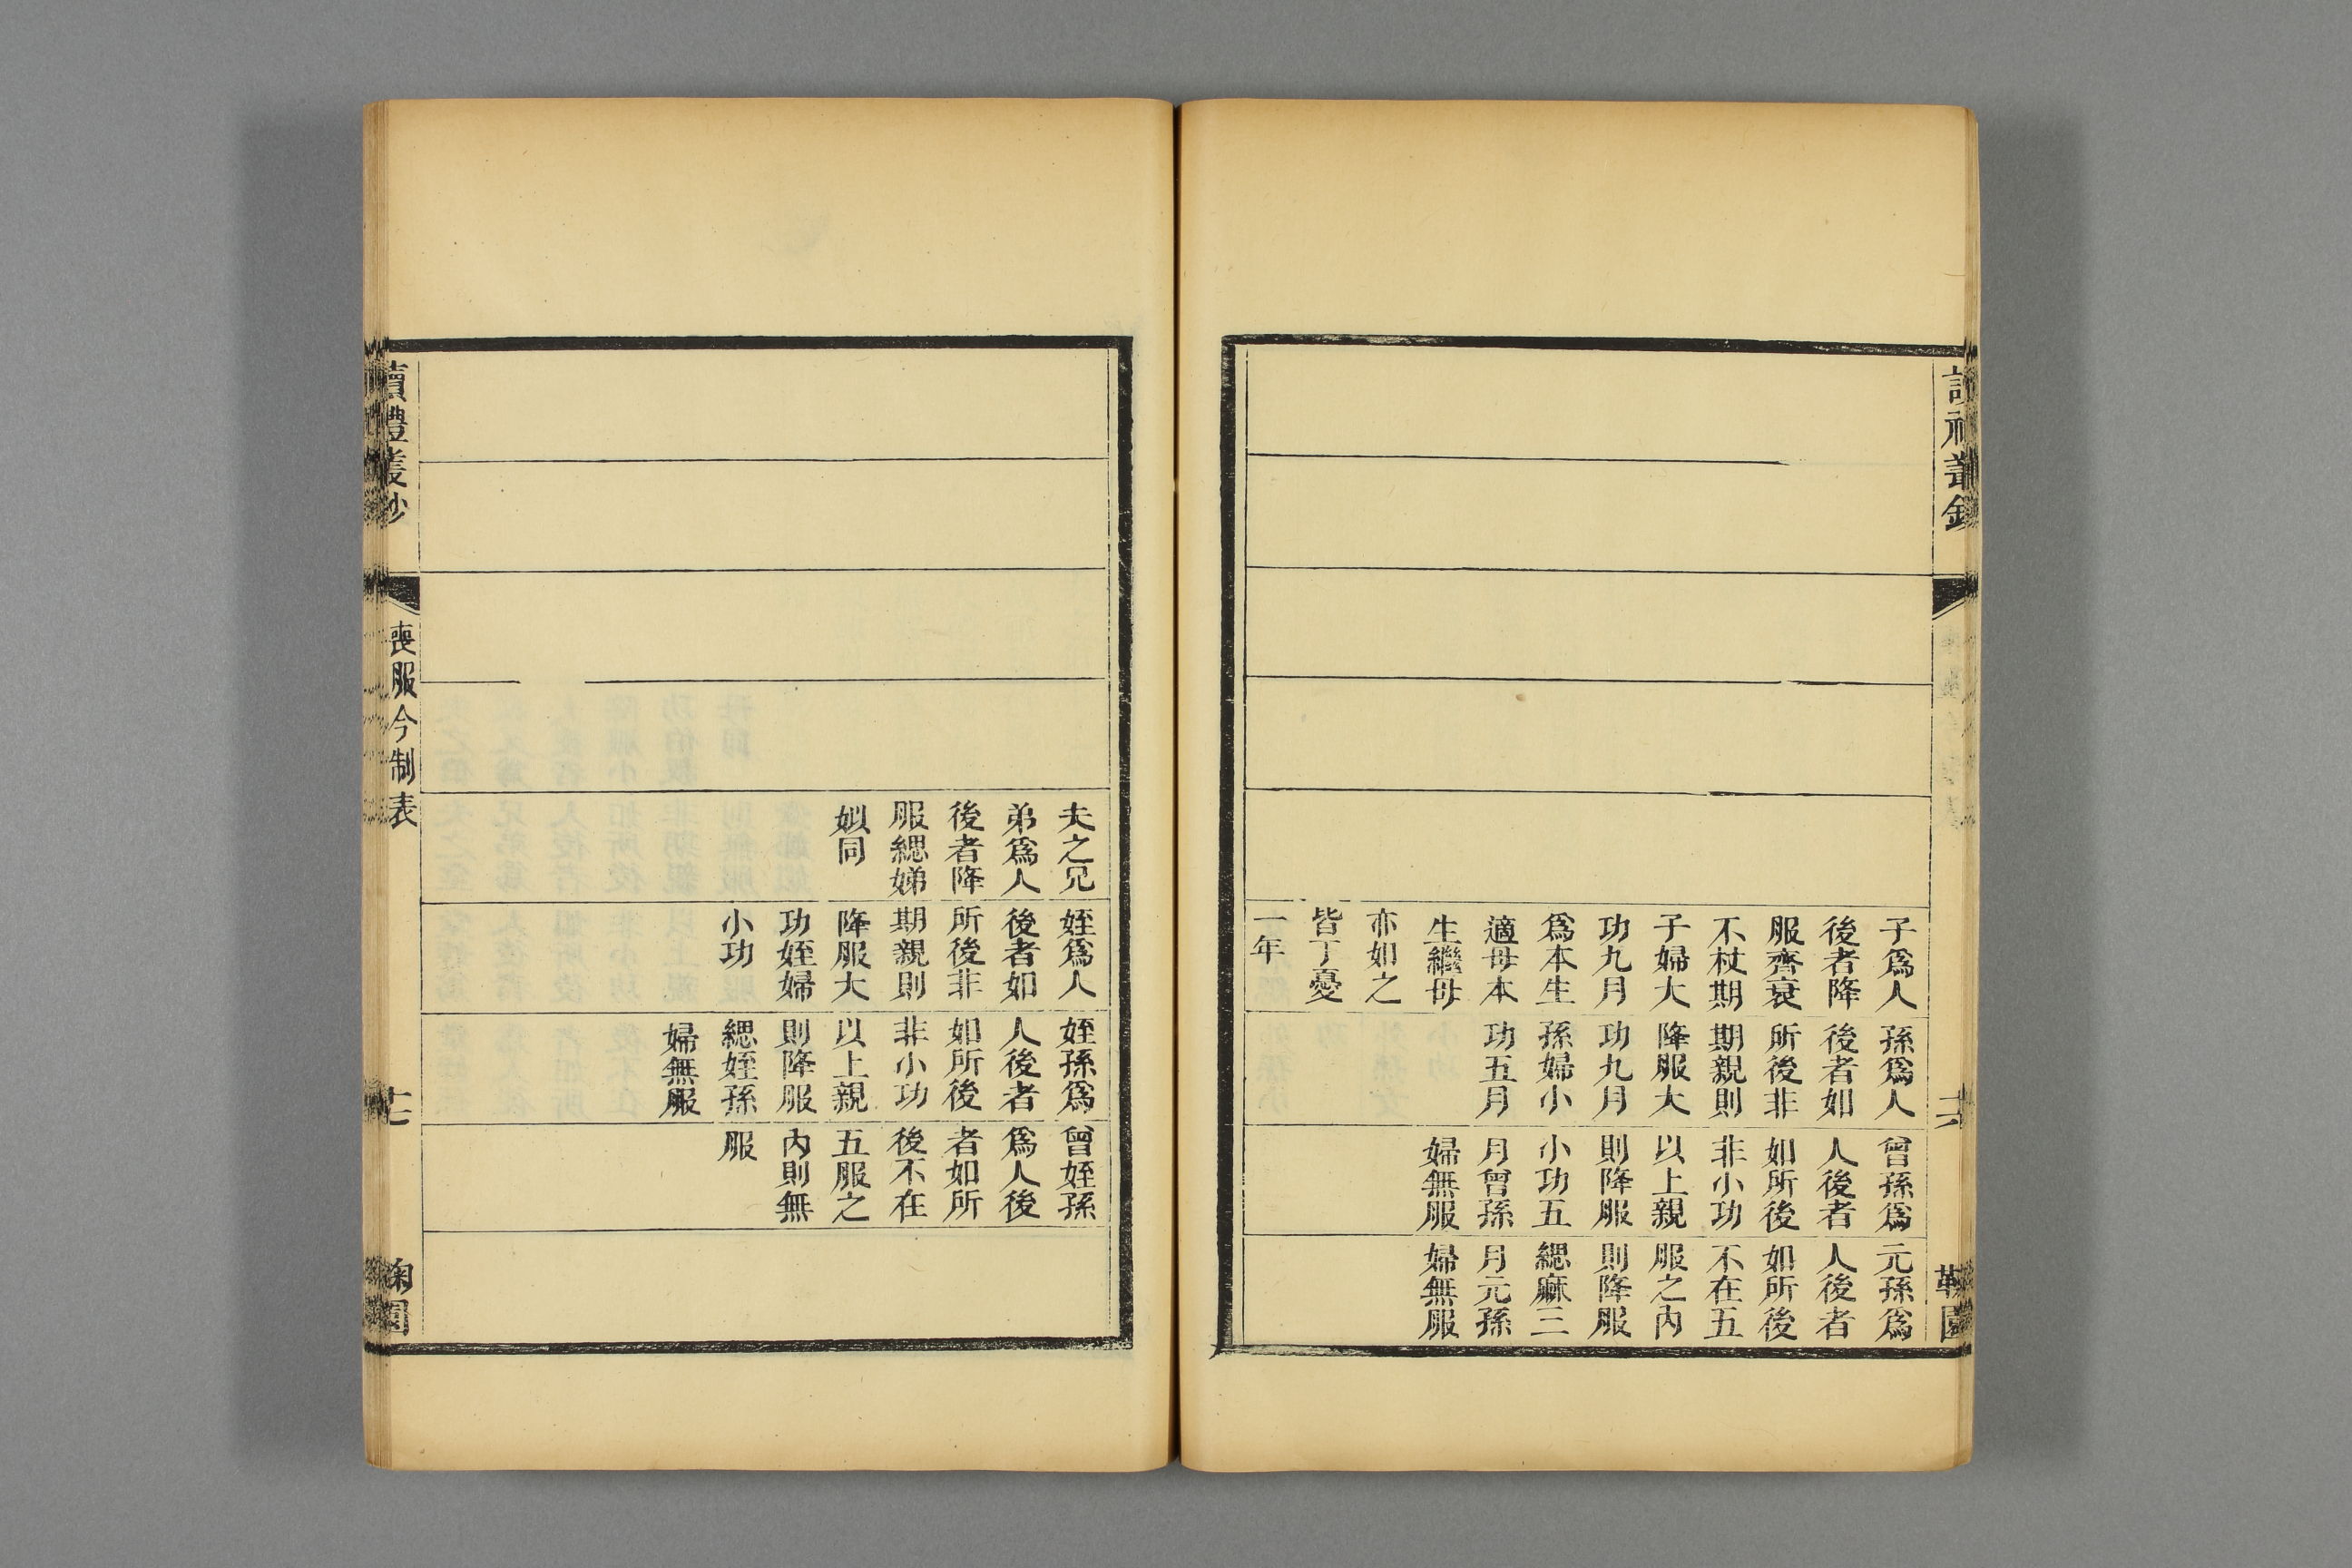 子爲人
後者降
服齊衰
不杖期
子婦大
功九月
爲本生
適母本
生繼母
亦如之
皆丁憂
一年
孫爲人
後者如
所後非
期親則
降服大
功九月
孫婦小
功五月
曾孫爲
人後者
如所後
非小功
以上親
則降服
小功五
月曾孫
婦無服
元孫爲
人後者
如所後
不在五
服之內
則降服
緦麻三
月元孫
婦無服
夫之兄
弟爲人
後者降
服緦娣
姒同
姪爲人
後者如
所後非
期親則
降服大
功姪婦
小功
姪孫爲
人後者
如所後
非小功
以上親
則降服
緦姪孫
婦無服
曾姪孫
爲人後
者如所
後不在
五服之
內則無
服
讀禮叢鈔
喪服今制表